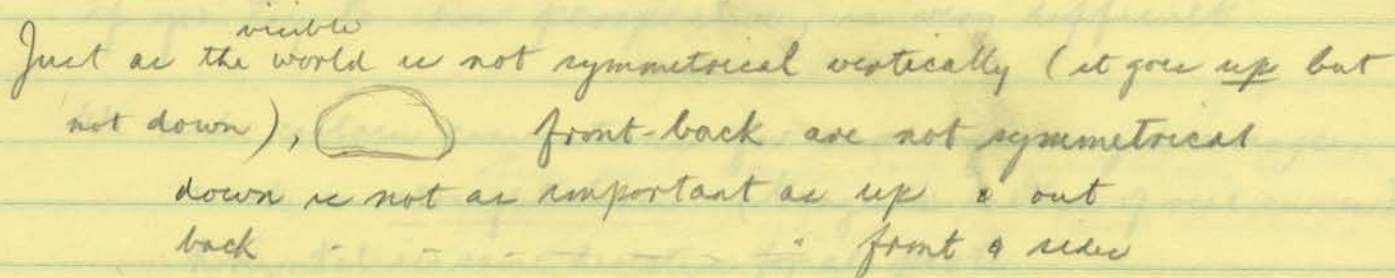 visible
Just as the world is not symmetrical vertically (it goes up but
not down), front-back are not symmetrical
down is not as important as up & out
back - - - - - " front & sides